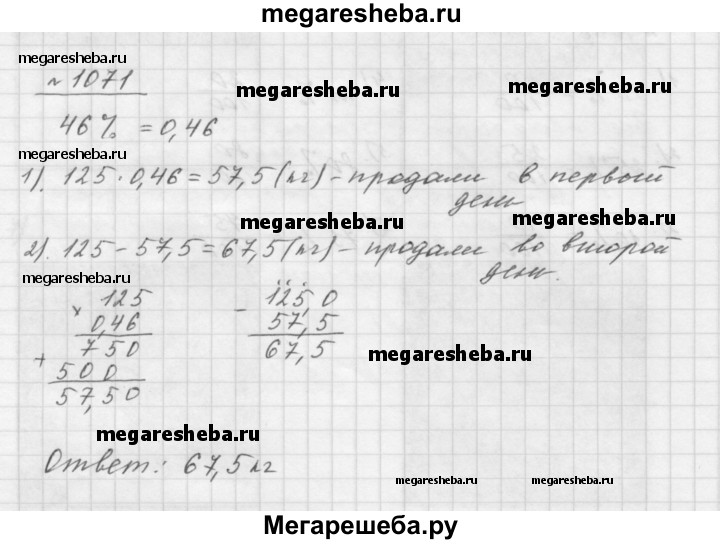 megaresheba.ru
megaresheba.ru
№ 1071
megaresheba.ru
46% = 0,46
megaresheba.ru
1). 125 · 0,46 = 57,5 (кг) - продали в первый
день
megaresheba.ru
megaresheba.ru
2). 125 - 57,5 = 67,5 (кг) - продали во второй
день.
megaresheba.ru
× 125
0,46
+ 750
500
57,50
- 125,0
57,5
67,5
megaresheba.ru
megaresheba.ru
Ответ: 67,5 кг
megaresheba.ru
megaresheba.ru
Мегарешеба.ру